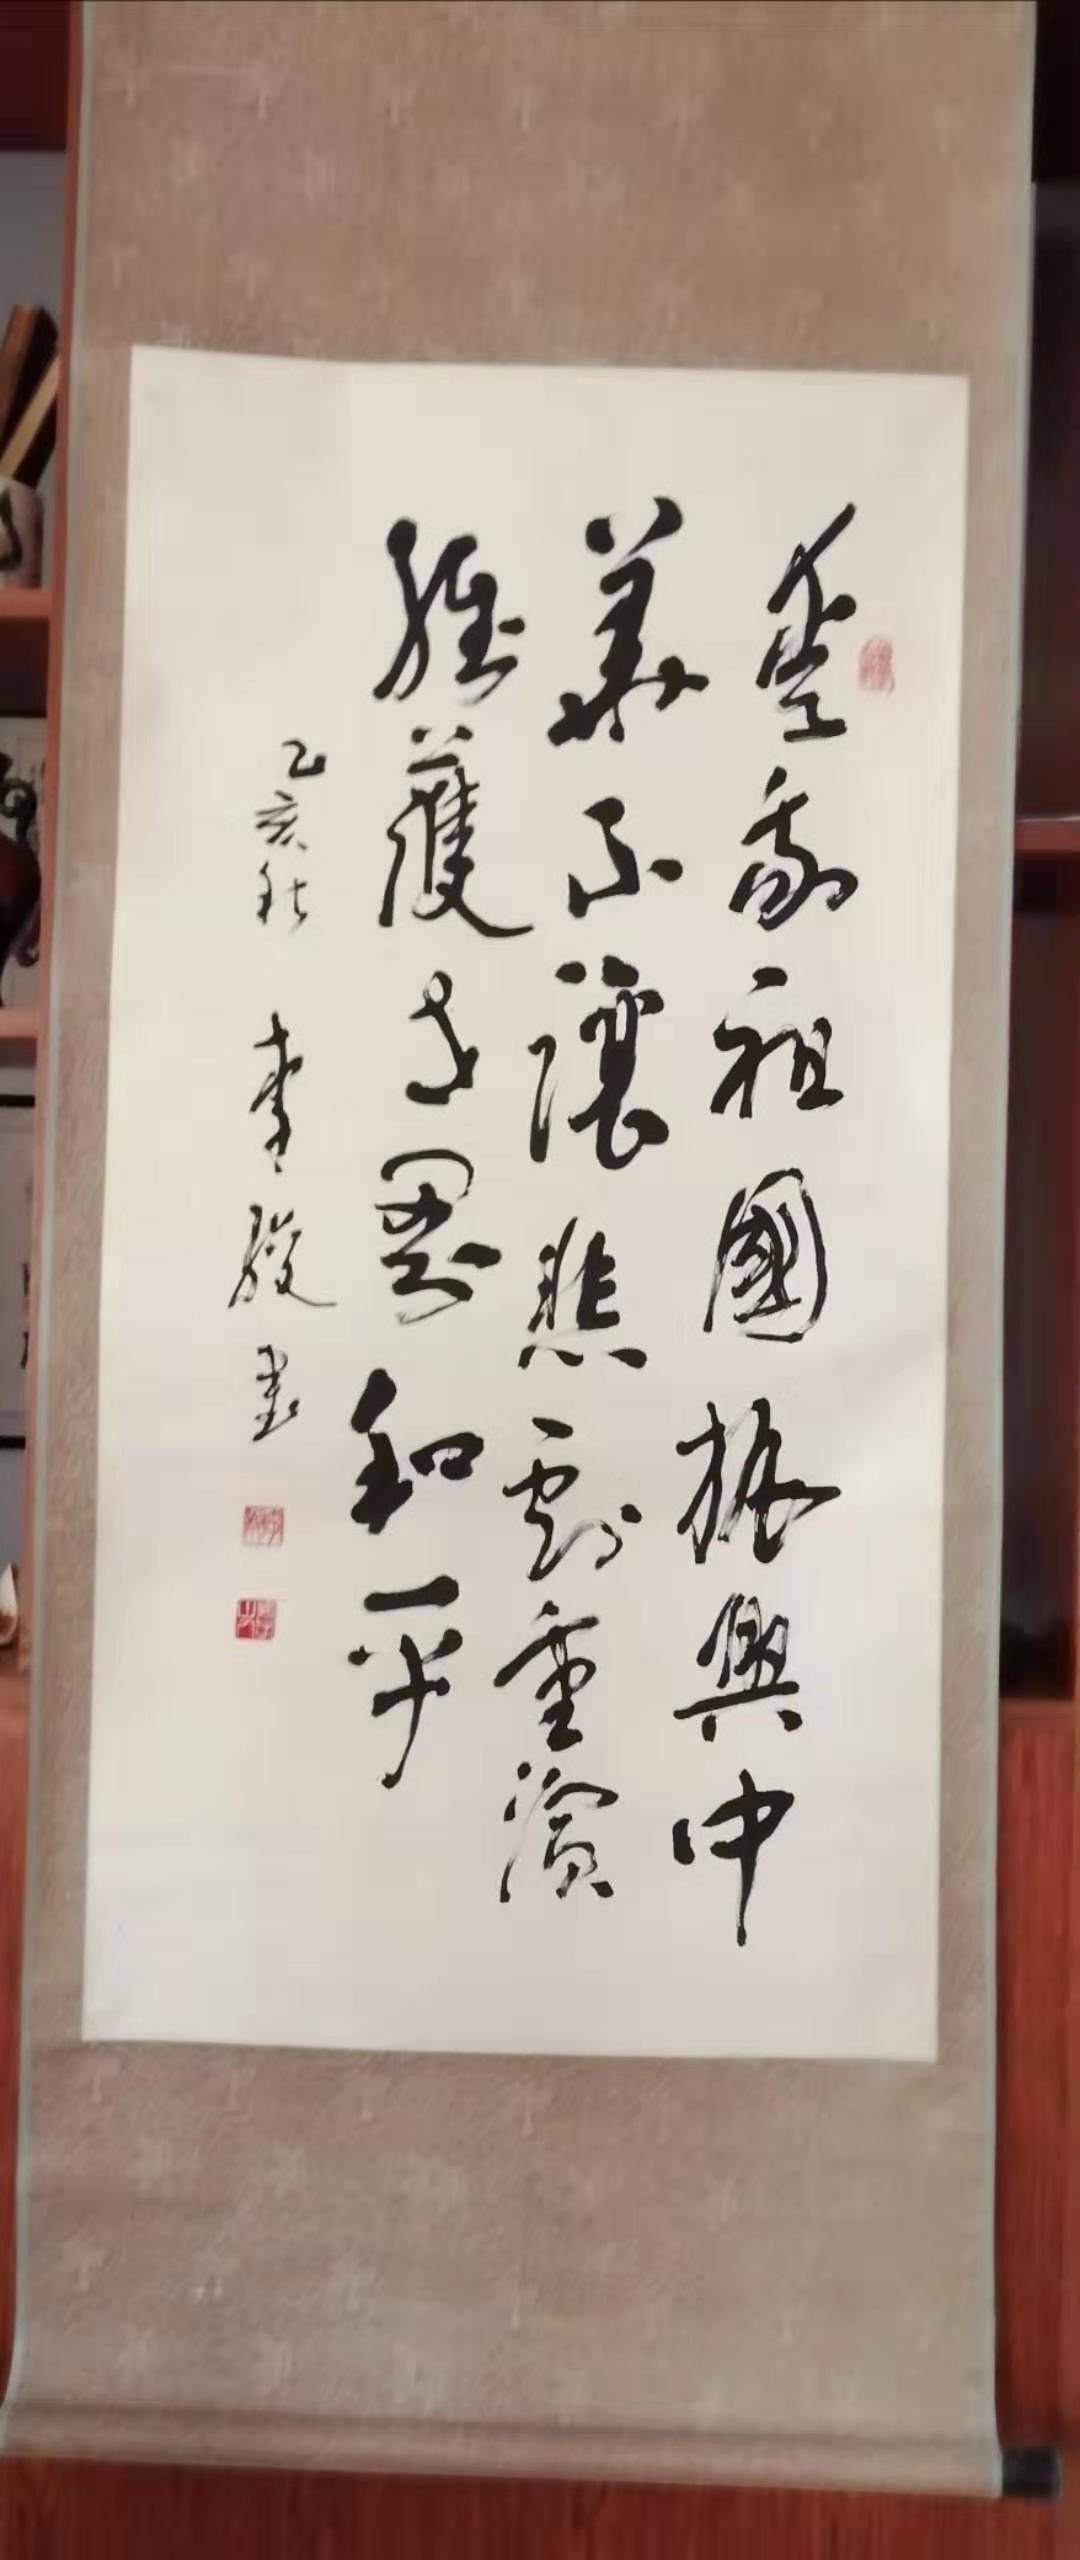 愛我祖國振興中
華不讓悲劇重演
維護世界和平
乙亥秋 李駿書